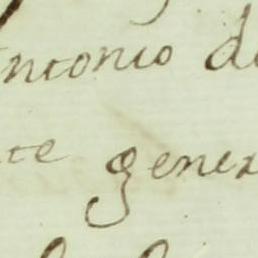 Antonio de
te gener